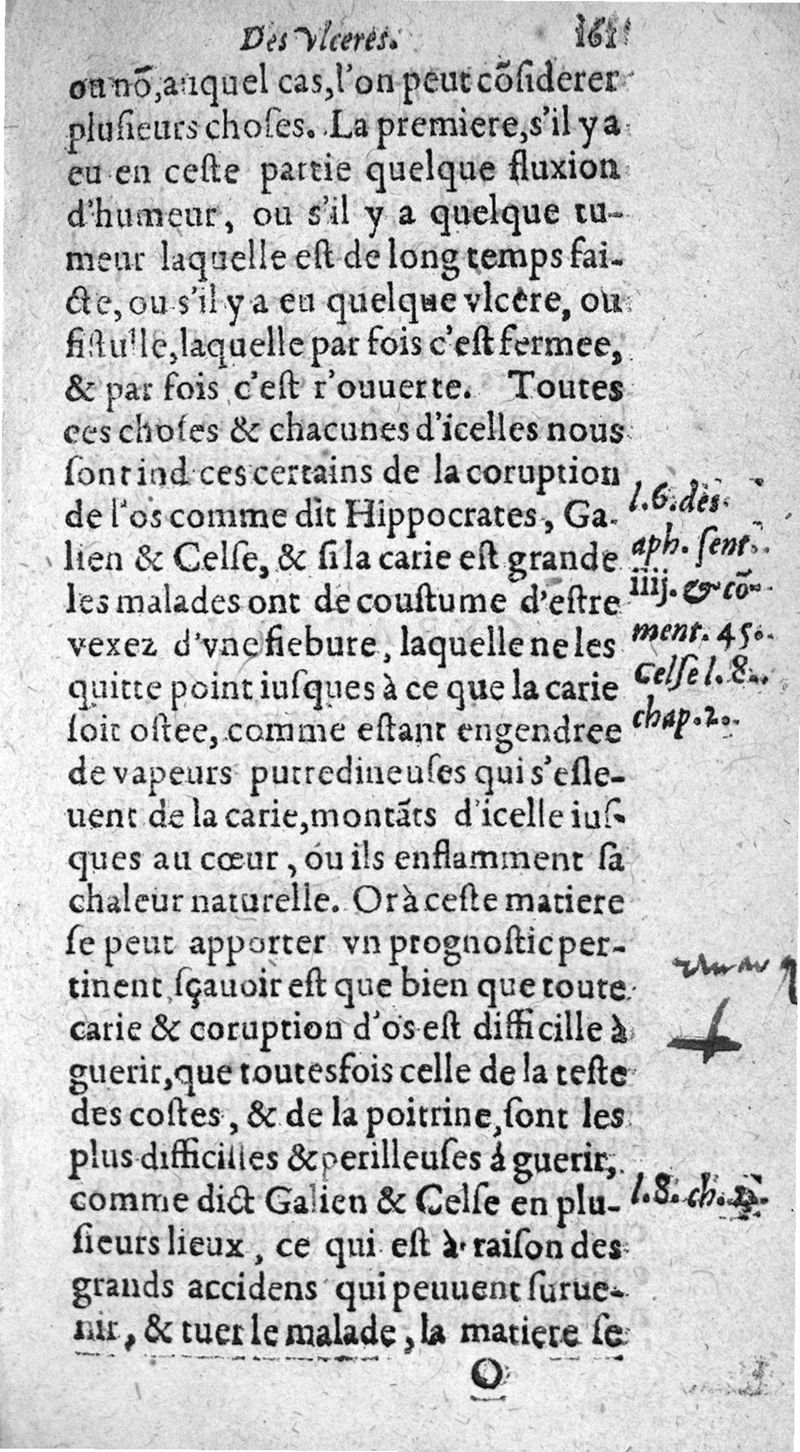 Des vlceres. 161
ou nõ, auquel cas, l'on peut cõsiderer
plusieurs choses. La premiere, s'il y a
eu en ceste partie quelque fluxion
d'humeur, ou s'il y a quelque tu-
meur laquelle est de long temps fai-
cte, ou s'il y a eu quelque vlcere, ou
fistulle, laquelle par fois c'est fermee,
& par fois c'est r'ouuerte. Toutes
ces choses & chacunes d'icelles nous
sont indices certains de la coruption
de l'os comme dit Hippocrates, Ga-
lien & Celse, & si la carie est grande
les malades ont de coustume d'estre
vexez d'vne fiebure, laquelle ne les
quitte point iusques à ce que la carie
soit ostee, comme estant engendree
de vapeurs putredineuses qui s'esle-
uent de la carie, montãts d'icelle ius-
ques au cœur, ou ils enflamment sa
chaleur naturelle. Or à ceste matiere
se peut apporter vn prognostic per-
tinent, sçauoir est que bien que toute
carie & coruption d'os est difficille à
guerir, que toutesfois celle de la teste
des costes, & de la poitrine, sont les
plus difficilles & perilleuses á guerir,
comme dict Galien & Celse en plu-
sieurs lieux, ce qui est à raison des
grands accidens qui peuuent surue-
nir, & tuer le malade, la matiere se
O
l. 6. des
aph. sent.
iiij. & cõ-
ment. 45.
Celse l. 8.
chap. 2.
l. 8. ch.